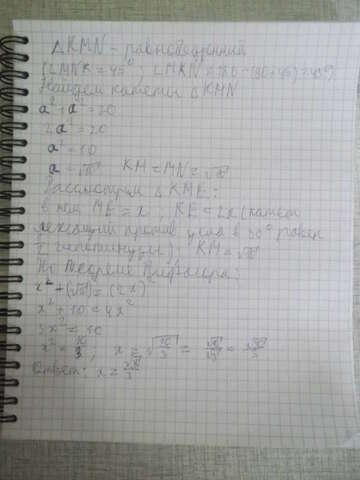 △KMN - равнобедренный
(∠MNK = 45°, ∠MKN = 180 - (90+45) = 45°)
Найдем катеты △KMN
a² + a² = 20
2a² = 20
a² = 10
a = √10 KM = MN = √10
Рассмотрим △KME:
в нем ME = x, KE = 2x (катет
лежащий против угла в 30° равен
гипотенузы), KM = √10
По теореме Пифагора:
x² + (√10)² = (2x)²
x² + 10 = 4x²
3x² = 10
x² = 10/3, x = √10/3 = √10/√3 = √30/3
Ответ: x =